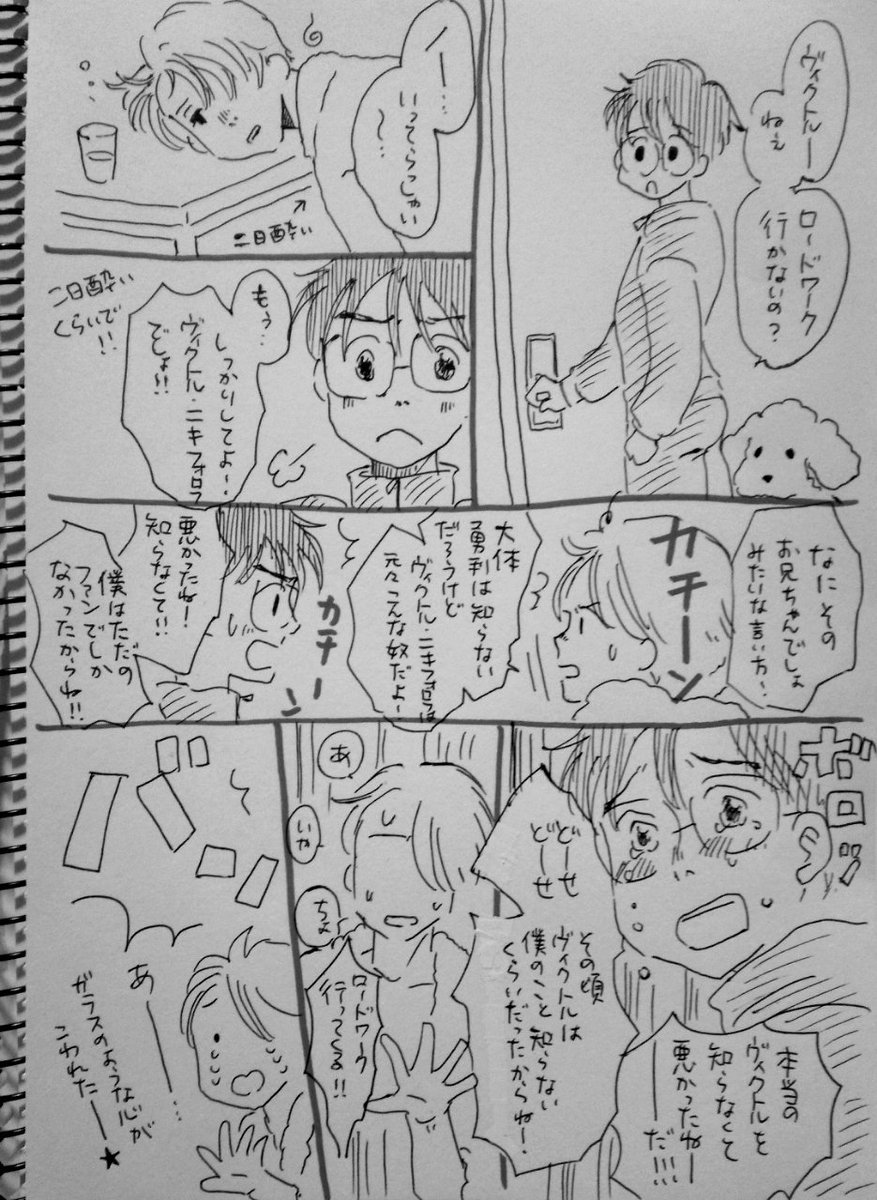 ヴィクトルー
ねぇ
ロードワーク
行かないの?
んー…
いってらっしゃい
〜…
二日酔い
もぅ…
しっかりしてよ〜、
ヴィクトル・ニキフォロフ
でしょ!!
二日酔い
くらいで!!
なにその
お兄ちゃんでしょ
みたいな言い方〜、
カチーン
大体
勇利は知らない
だろうけど
ヴィクトル・ニキフォロフは
元々こんな奴だよ〜
カチーン
悪かったね!
知らなくて!!
僕はただの
ファンでしか
なかったからね!!
ボロッ
本当の
ヴィクトルを
知らなくて
悪かったねー
だ!!!
どーせ
どーせ
その頃
ヴィクトルは
僕のこと知らない
くらいだったからね!
あ
いや
ちょ
ロードワーク
行ってくる!!
バン
あー…
ガラスのような心が
こわれたー★